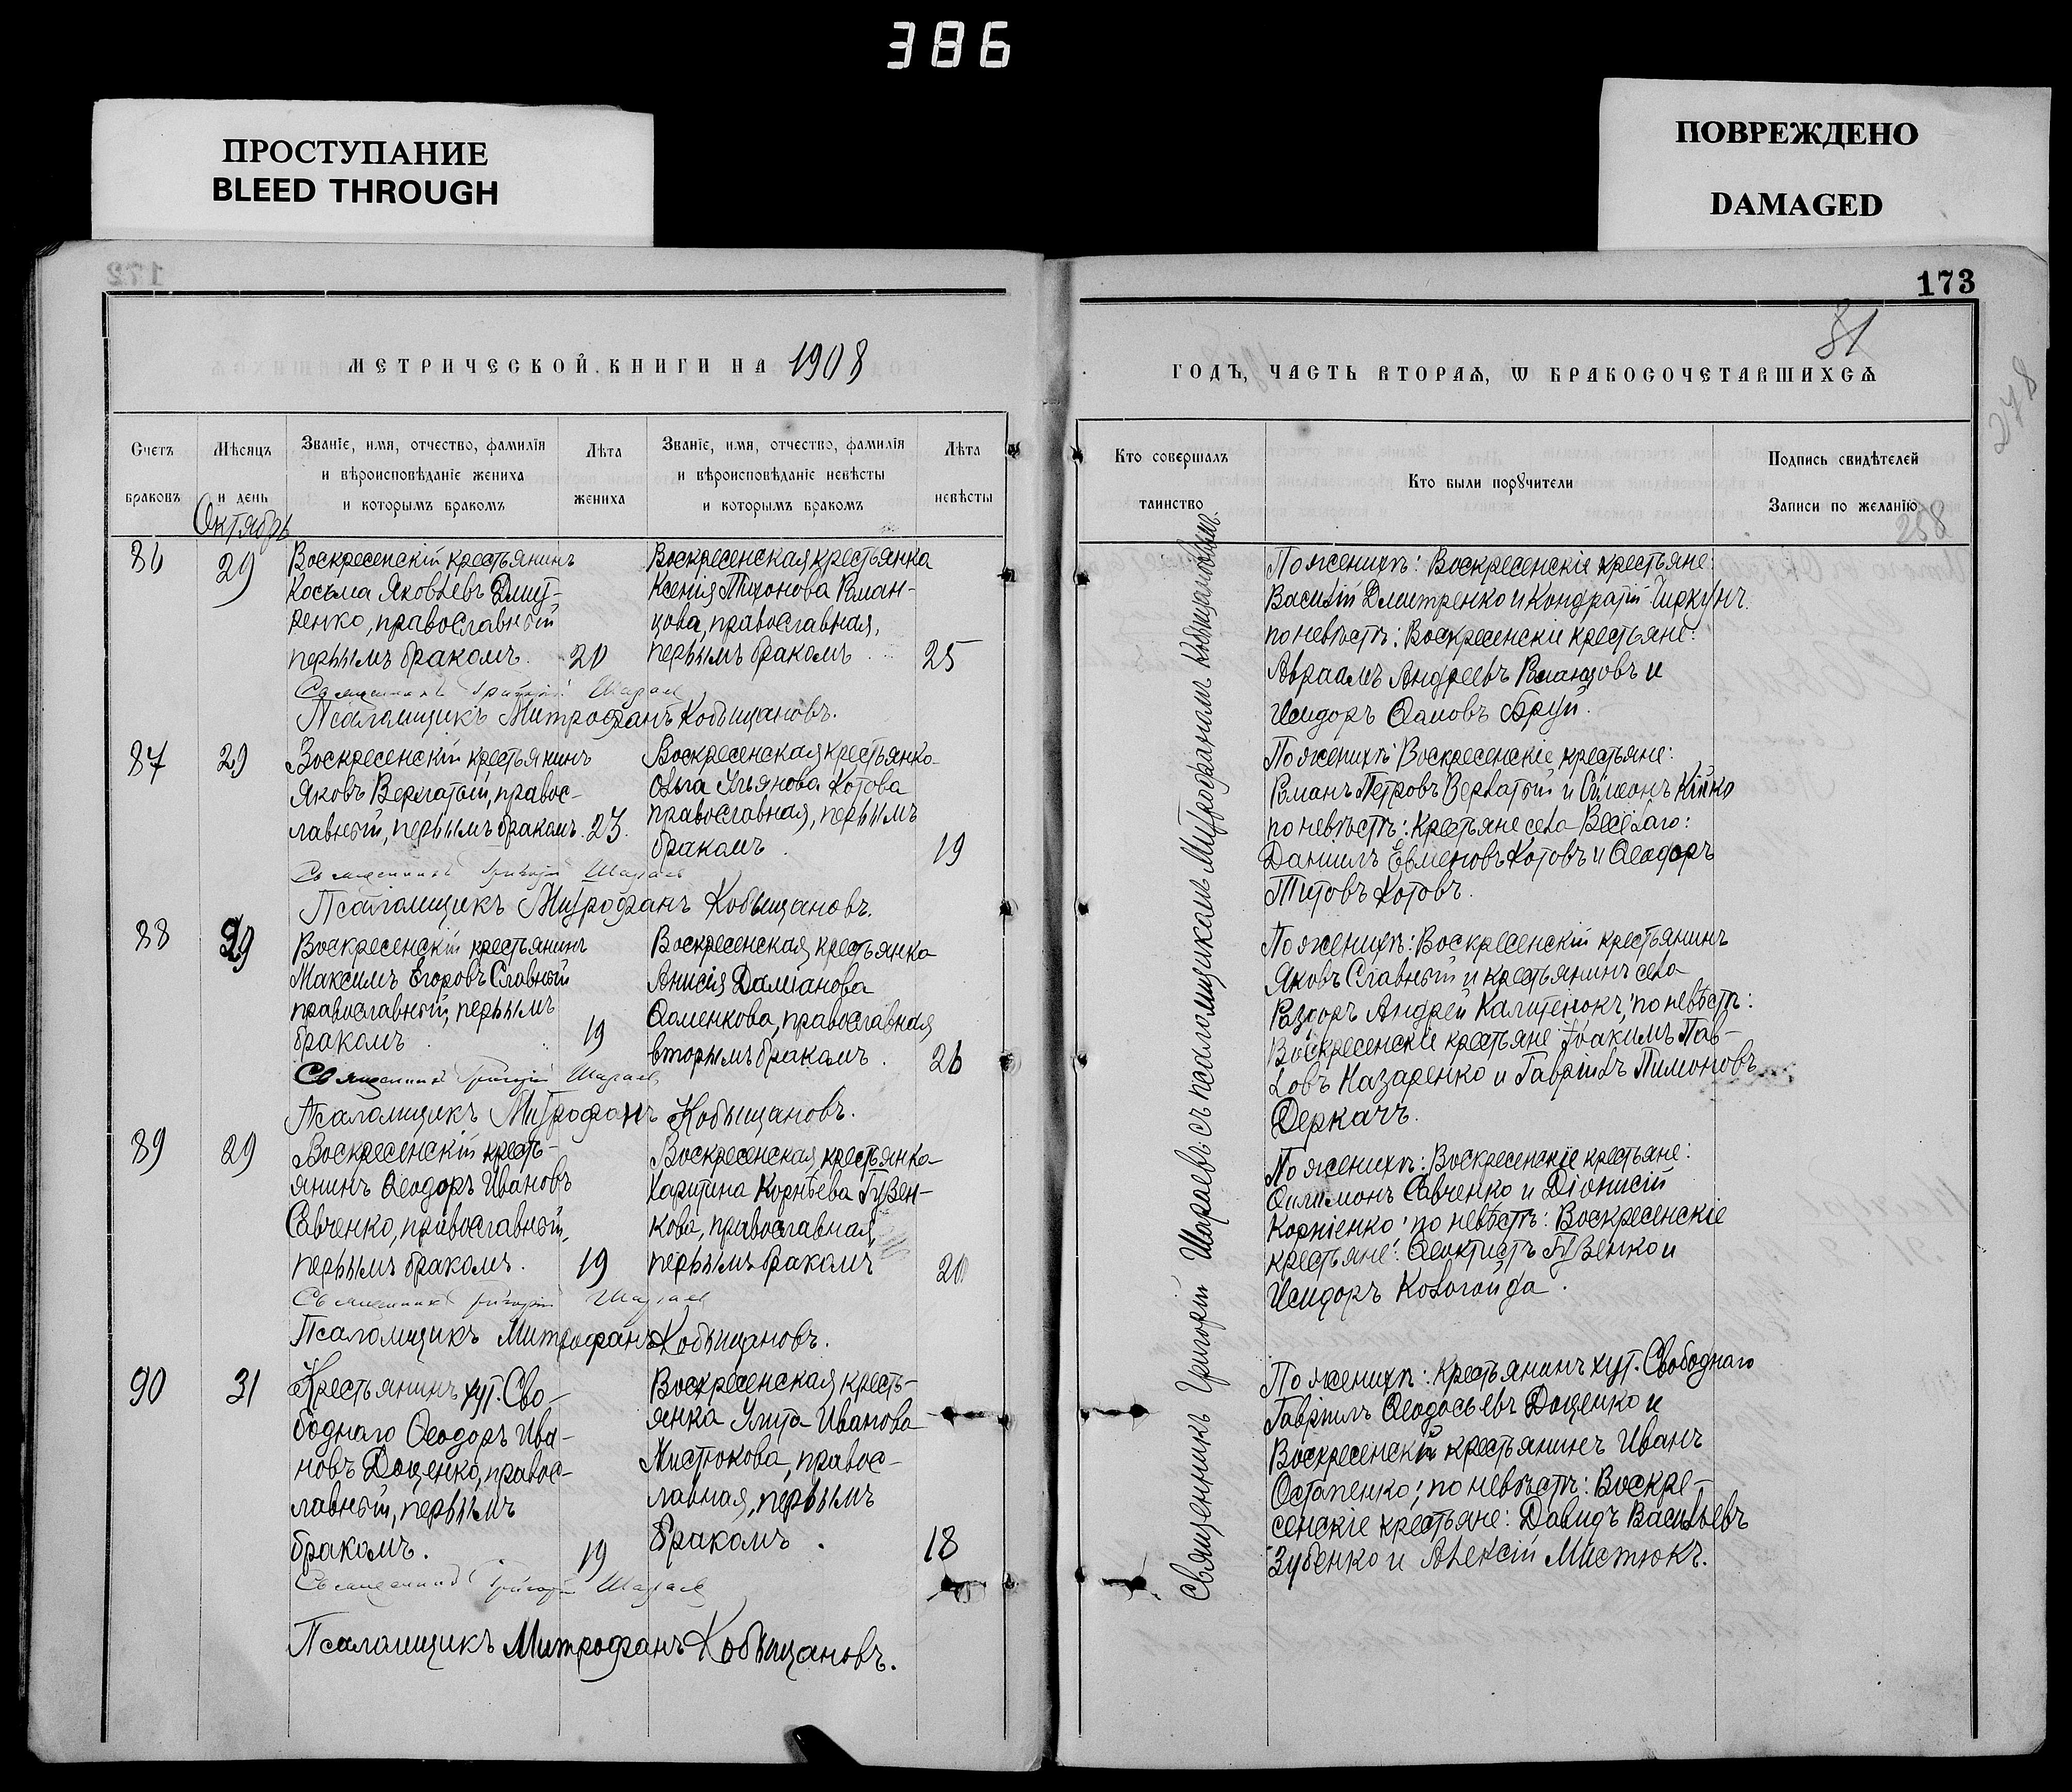 386
ПРОСТУПАНИЕ
BLEED THROUGH
ПОВРЕЖДЕНО
DAMAGED
172
МЕТРИЧЕСКОЙ КНИГИ НА 1908
Счетъ
браковъ
Мѣсяцъ
и день
Октябрь
Званіе, имя, отчество, фамилія
и вѣроисповѣданіе жениха
и которымъ бракомъ
Лѣта
жениха
Званіе, имя, отчество, фамилія
и вѣроисповѣданіе невѣсты
и которымъ бракомъ
Лѣта
невѣсты
86
29
Воскресенскій крестьянинъ
Косьма Яковлевъ Дмит-
ренко, православный
первымъ бракомъ. 20
Воскресенская крестьянка
Ксенія Тихонова Роман-
цова, православная,
первымъ бракомъ. 25
Священникъ Григорій Шараевъ
Псаломщикъ Митрофанъ Кобыщановъ.
87
29
Воскресенскій крестьянинъ
Яковъ Верлатый, правос-
лавный, первымъ бракомъ. 23.
Воскресенская крестьянка
Ольга Ульянова Котова
православная, первымъ
бракомъ. 19
Священникъ Григорій Шараевъ
Псаломщикъ Митрофанъ Кобыщановъ.
88
29
Воскресенскій крестьянинъ
Максимъ Егоровъ Славный
православный, первымъ
бракомъ 19
Воскресенская крестьянка
Анисія Даміанова
Ѳоменкова, православная
вторымъ бракомъ. 26
Священникъ Григорій Шараевъ
Псаломщикъ Митрофанъ Кобыщановъ.
89
29
Воскресенскій кресть-
янинъ Ѳеодоръ Ивановъ
Савченко, православный,
первымъ бракомъ. 19
Воскресенская крестьянка
Харитина Корнѣева Гузен-
кова, православная,
первымъ бракомъ 20
Священникъ Григорій Шараевъ
Псаломщикъ Митрофанъ Кобыщановъ.
90
31
Крестьянинъ хут. Сво-
боднаго Ѳеодоръ Ива-
новъ Доценко, правос-
лавный, первымъ
бракомъ. 19
Воскресенская кресть-
янка Улита Иванова
Мистюкова, правос-
лавная, первымъ
бракомъ. 18
Священникъ Григорій Шараевъ
Псаломщикъ Митрофанъ Кобыщановъ.
173
81
278
ГОДЪ, ЧАСТЬ ВТОРАЯ, Ѡ БРАКОСОЧЕТАВШИХСЯ
Кто совершалъ
таинство
Кто были порꙋчители
Подпись свидѣтелей
Записи по желанію
258
Священникъ Григорій Шараевъ съ псаломщикомъ Митрофаномъ Кобыщановымъ.
По женихѣ: Воскресенскіе крестьяне:
Василій Дмитренко и Кондратій Чиркунъ.
по невѣстѣ: Воскресенскіе крестьяне:
Авраамъ Андреевъ Романцовъ и
Исидоръ Ѳомовъ Бруй.
По женихѣ: Воскресенскіе крестьяне:
Романъ Петровъ Верлатый и Симеонъ Кійко
по невѣстѣ: Крестьяне села Весёлаго:
Даніилъ Евменовъ Котовъ и Ѳеодоръ
Титовъ Котовъ.
По женихѣ: Воскресенскій крестьянинъ
Яковъ Славный и крестьянинъ села
Раздоръ Андрей Калитенокъ; по невѣстѣ:
Воскресенскіе крестьяне Іоакимъ Пав-
ловъ Назаренко и Гавріилъ Пимоновъ
Деркачъ.
По женихѣ: Воскресенскіе крестьяне:
Филимонъ Савченко и Діонисій
Корніенко; по невѣстѣ: Воскресенскіе
крестьяне: Ѳеоктистъ Гузенко и
Исидоръ Кологойда.
По женихѣ: Крестьянинъ хут. Свободнаго
Гавріилъ Ѳеодосьевъ Доценко и
Воскресенскій крестьянинъ Иванъ
Остапенко; по невѣстѣ: Воскре-
сенскіе крестьяне: Давидъ Васильевъ
Зубенко и Алексій Мистюкъ.